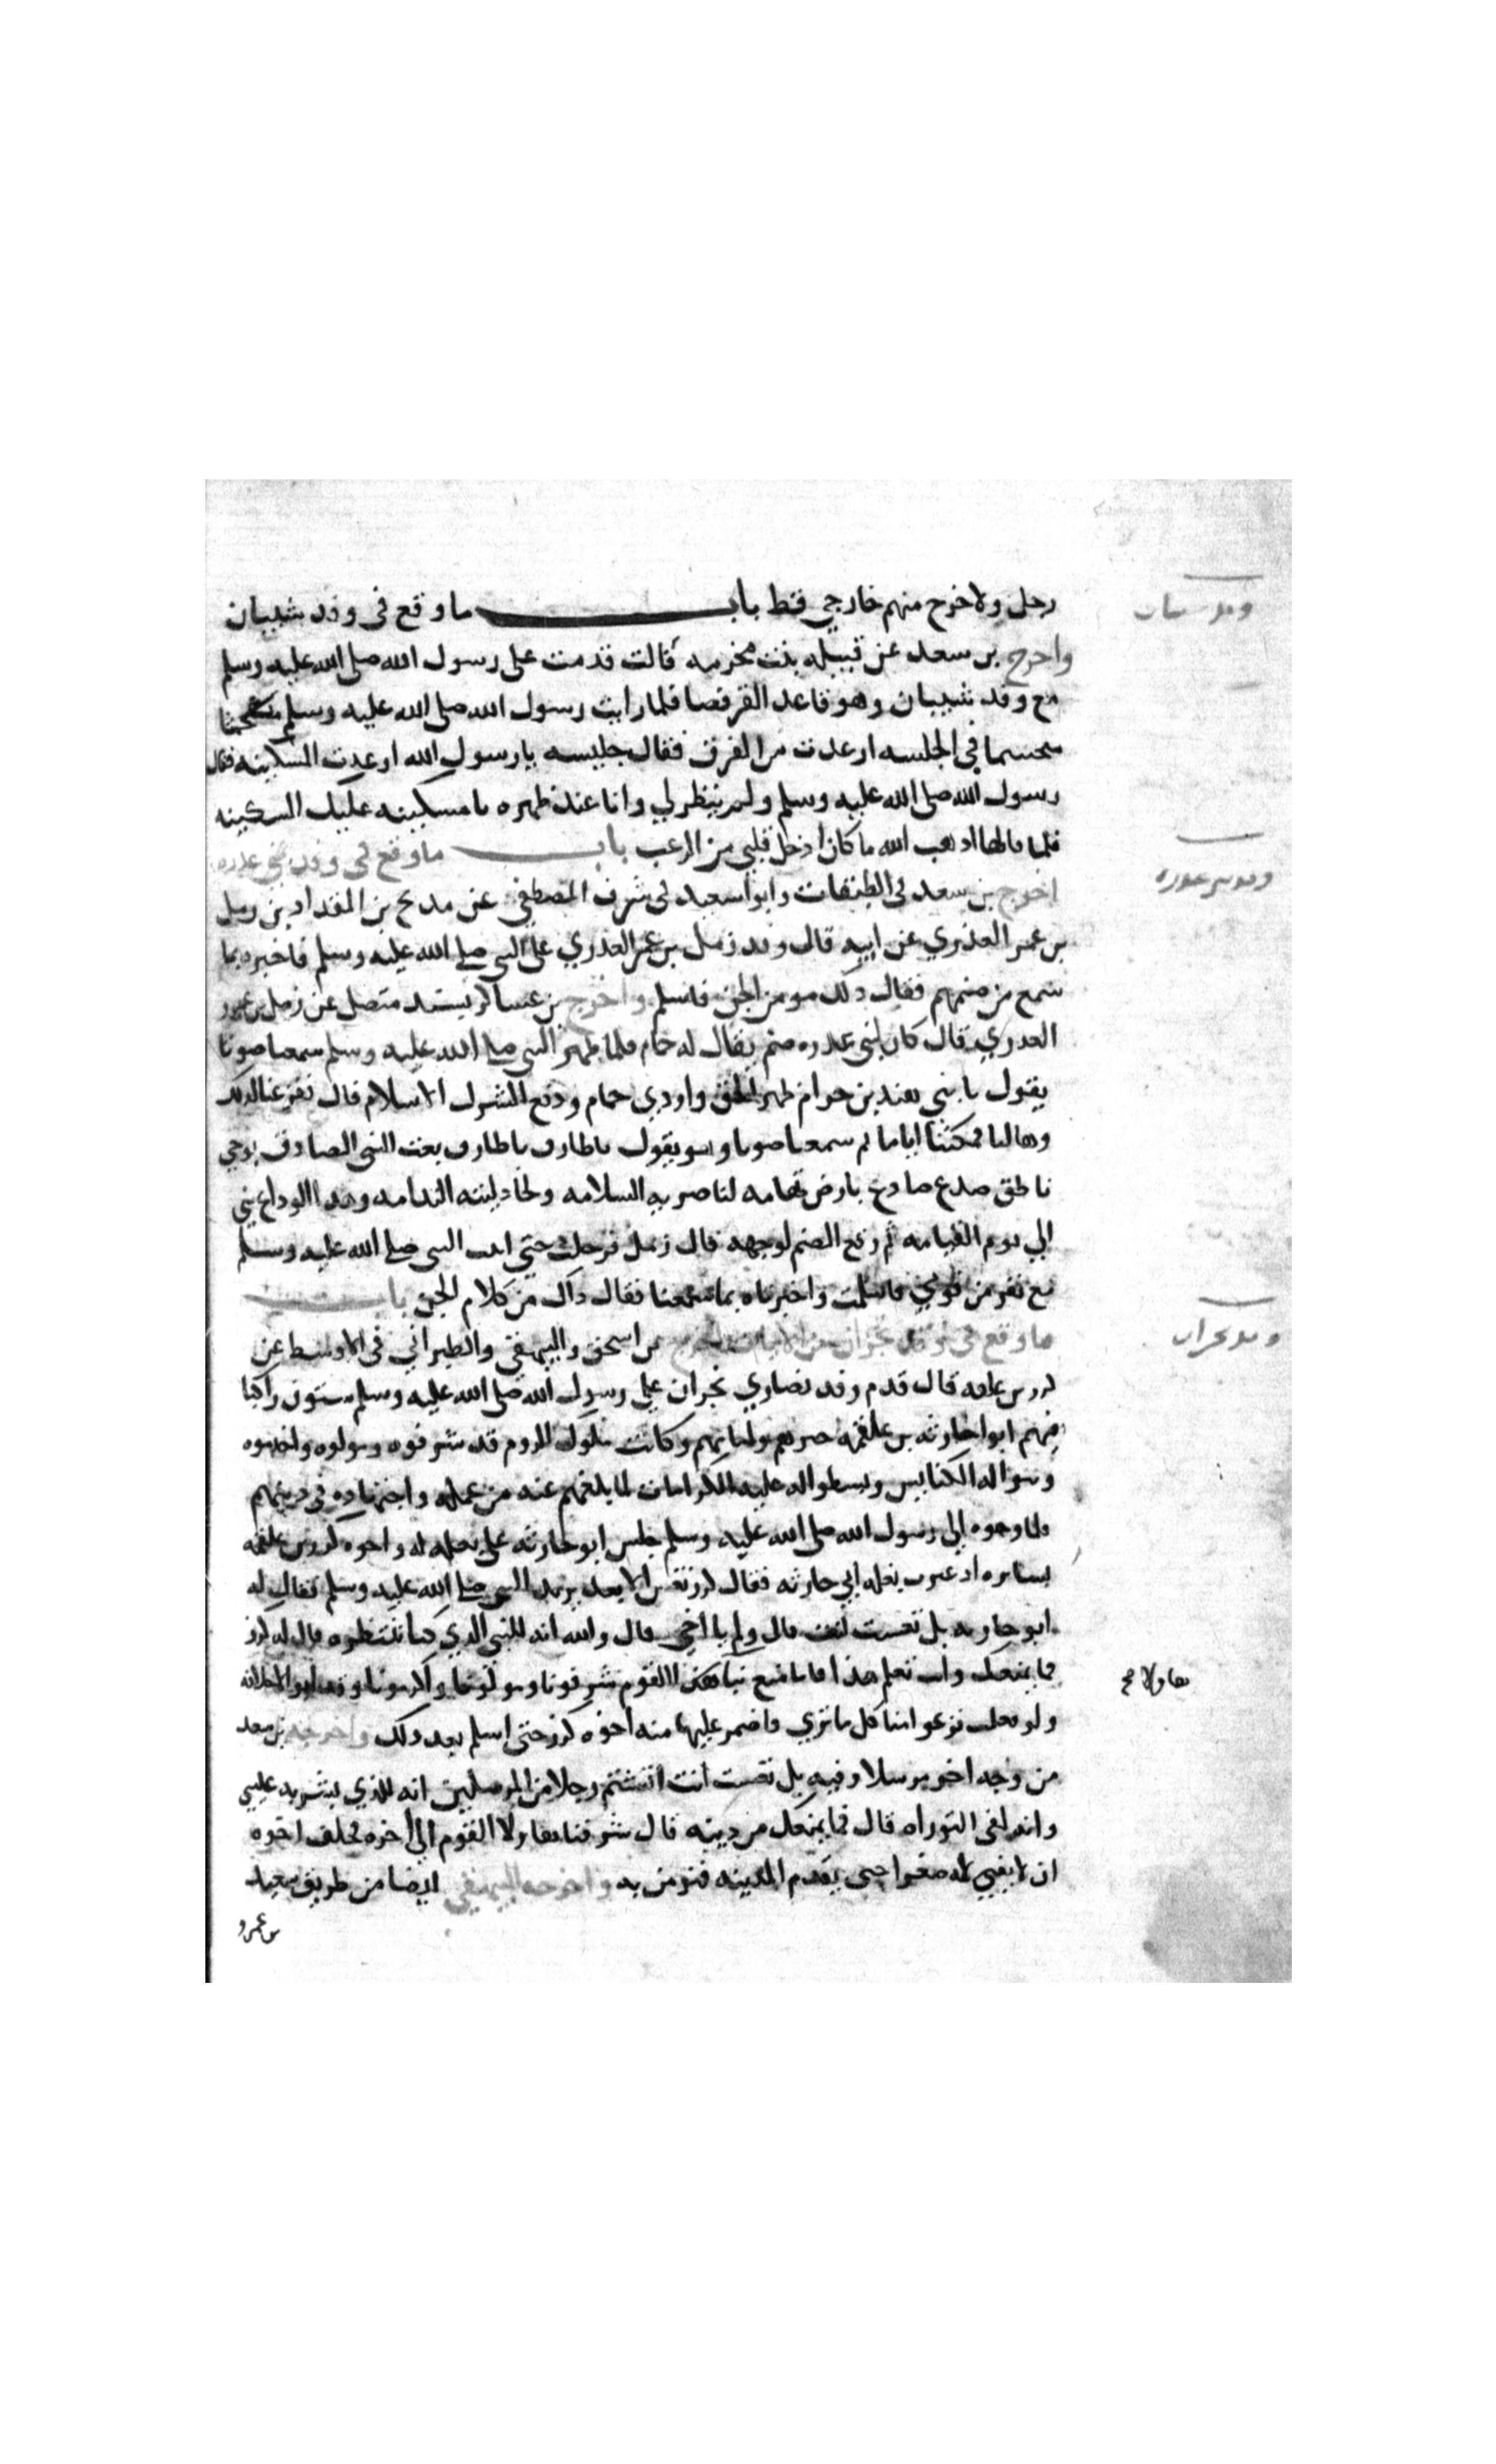 رجل ولاخرج منهم خارجي قط باب ما وقع في وفد شيبان
وفد شيبان
واخرج بن سعد عن قيله بنت مخرمه قالت قدمت على رسول الله صلى الله عليه وسلم
مع وفد شيبان وهو قاعد القرفصا فلما رايت رسول الله صلى الله عليه وسلم
متخشعا في الجلسه ارعدت من الفرق فقال جليسه يا رسول الله ارعدت المسكينه فقال
رسول الله صلى الله عليه وسلم ولم ينظر لي وانا عند ظهره يا مسكينه عليك السكينه
فلما قالها اذهب الله ما كان ادخل قلبي من الرعب باب ما وقع في وفد بني عذره
وفد بني عذره
اخرج بن سعد في الطبقات وابو اسعيد في شرف المصطفى عن مدلج بن المقداد بن زمل
بن عمر العذري عن ابيه قال وفد زمل بن عمر العذري على النبي صلى الله عليه وسلم فاخبره بما
سمع من صنمهم فقال ذلك مومن الجن فاسلم واخرج بن عساكر بسند متصل عن زمل بن عمرو
العدري قال كان لبني عذره صنم يقال له حمام فلما ظهر النبي صلى الله عليه وسلم سمعنا صوتا
يقول يا بني هند بن حرام ظهر الحق واودي حمام ودفع الشرك الاسلام قال ففزعنا لذلك
وهالنا فمكثنا اياما ثم سمعنا صوتا وهو يقول يا طارق يا طارق بعث النبي الصادق بوحي
ناطق صدع صادع بارض تهامه لناصريه السلامه ولخاذليه الندامه وهذا الوداع مني
الي يوم القيامه ثم وقع الصنم لوجهه قال زمل فرحلت حتى اتيت النبي صلى الله عليه وسلم
مع نفر من قومي فاسلمت واخبرناه بما سمعنا فقال ذاك من كلام الجن باب
وفد نجران
ما وقع في وفد نجران من الايات اخرج بن اسحق والبيهقي والطبراني في الاوسط عن
كرز بن علقمه قال قدم وفد نصاري نجران على رسول الله صلى الله عليه وسلم ستون راكبا
فيهم ابو احارثه بن علقمه حبرهم وامامهم وكانت ملوك الروم قد شرفوه ومولوه واخدموه
وبنوا له الكنايس وبسطوا له عليه الكرامات لما يبلغهم عنه من علمه واجتهاده في دينهم
فلما وجهوه الي رسول الله صلى الله عليه وسلم جلس ابو حارثه على بغله له واخوه كرز بن علقمه
يسايره اذ عثرت بغله ابي حارثه فقال كرز تعس الابعد يريد النبي صلى الله عليه وسلم فقال له
ابو حارثه بل تعست انت قال ولم يا اخي قال والله انه للنبي الذي كنا ننتظره قال له كرز
فما يمنعك وانت تعلم هذا قال ما صنع بنا هذا القوم شرفونا ومولونا واكرمونا وقد ابوا الا خلافه
ولو فعلت نزعوا منا كل ما تري فاضمر عليها منه اخوه كرز حتى اسلم بعد ذلك واخرجه بن سعد
من وجه اخر مرسلا وفيه بل تعست انت اتشتم رجلا من المرسلين انه للذي بشر به عيسى
وانه لفي التوراه قال فما يمنعك من دينه قال شرفنا هاولا القوم الي اخره فحلف اخوه
هاولا صح
ان لا يثني له صعرا حتى يقدم المدينه فتومن به واخرجه البيهقي ايضا من طريق سعيد
بن عمرو